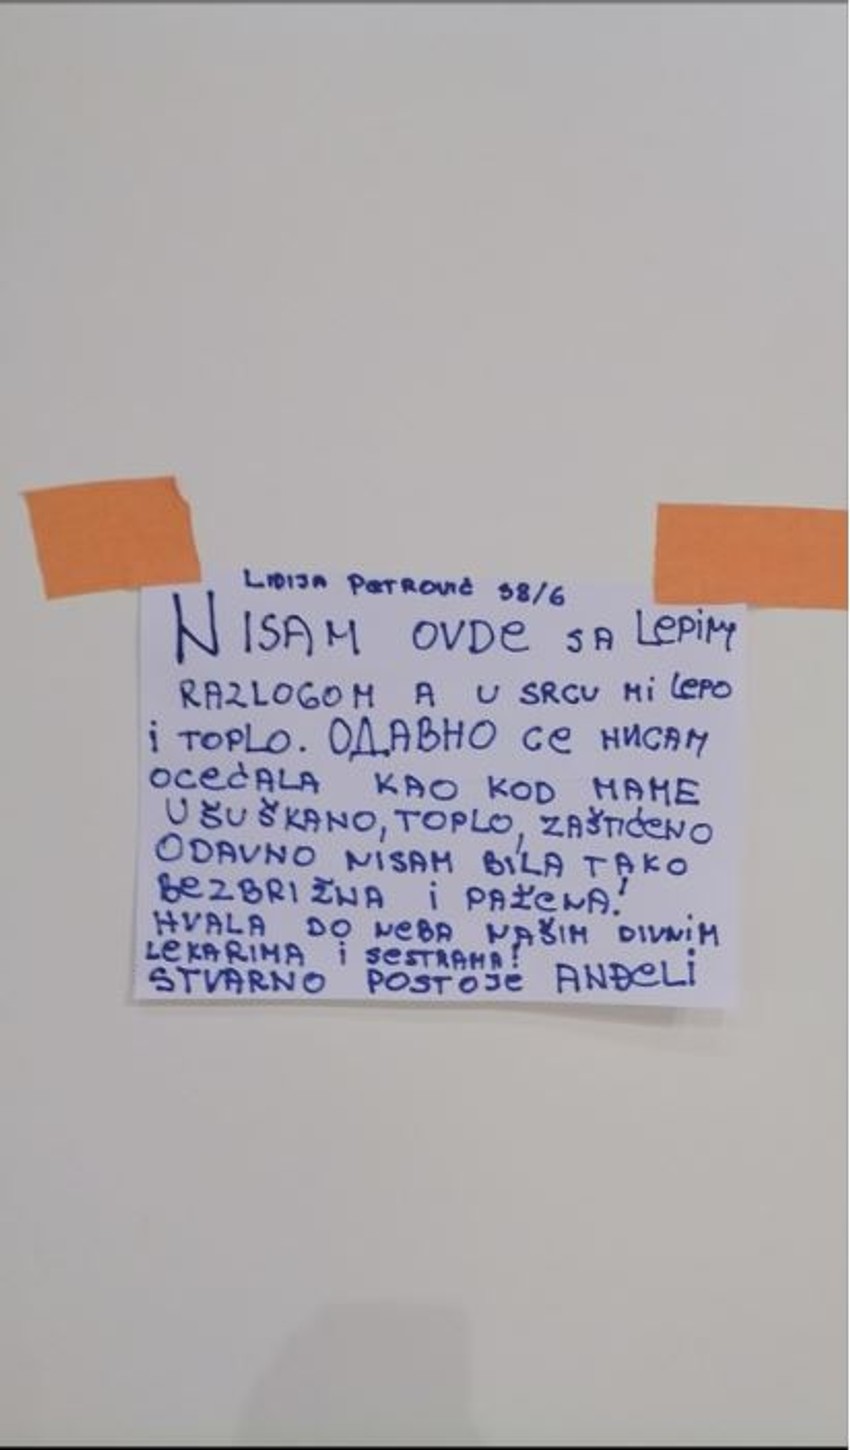 LIDIJA PETROVIĆ 98/6
NISAM OVDE SA LEPIM
RAZLOGOM A U SRCU MI LEPO
I TOPLO. ОДАВНО СЕ НИСАМ
OCEĆALA KAO KOD MAME
UŠUŠKANO, TOPLO, ZAŠTIĆENO
ODAVNO NISAM BILA TAKO
BEZBRIŽNA I PAŽENA!
HVALA DO NEBA NAŠIM DIVNIM
LEKARIMA I SESTRAMA!
STVARNO POSTOJE ANĐELI